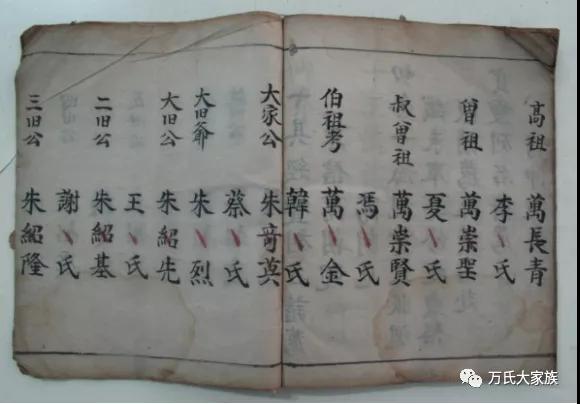 高祖 萬長青
李氏
曾祖 萬崇聖
夏氏
叔曾祖 萬崇賢
馮氏
伯祖考 萬金
韓氏
大家公 朱奇
蔡氏
大旧爺 朱烈
大旧公 朱紹先
王氏
二旧公 朱紹基
謝氏
三旧公 朱紹隆
万氏大家族